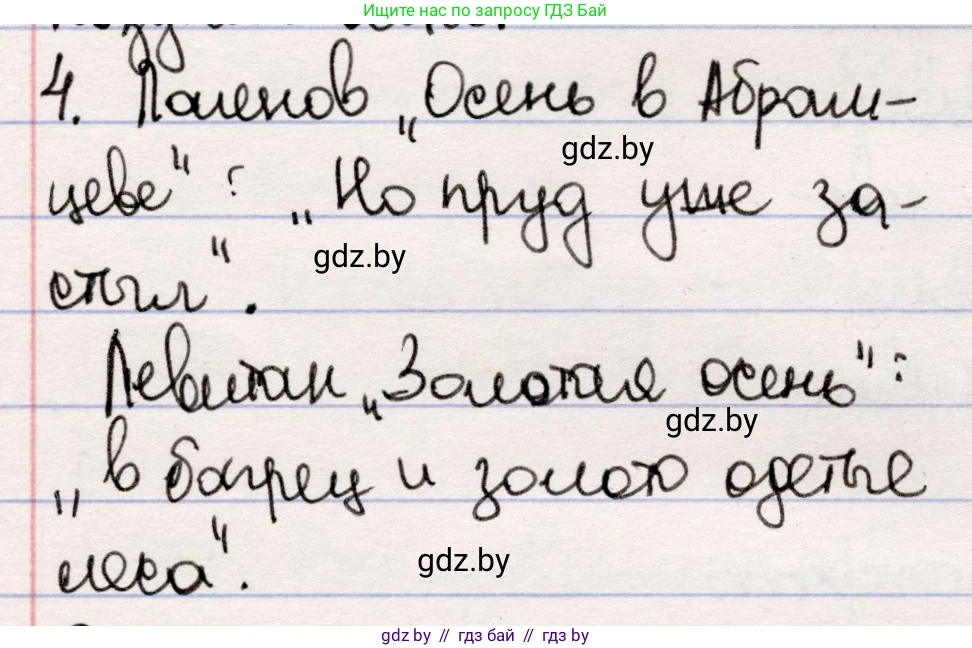 Ищите нас по запросу ГДЗ Бай
4. Поленов „Осень в Абрам-
gdz.by
цеве": „Но пруд уже за-
gdz.by
стыл".
Левитан „Золотая осень":
gdz.by
„в багрец и золото одетые
леса".
gdz.by
gdz by // гдз бай // гдз by